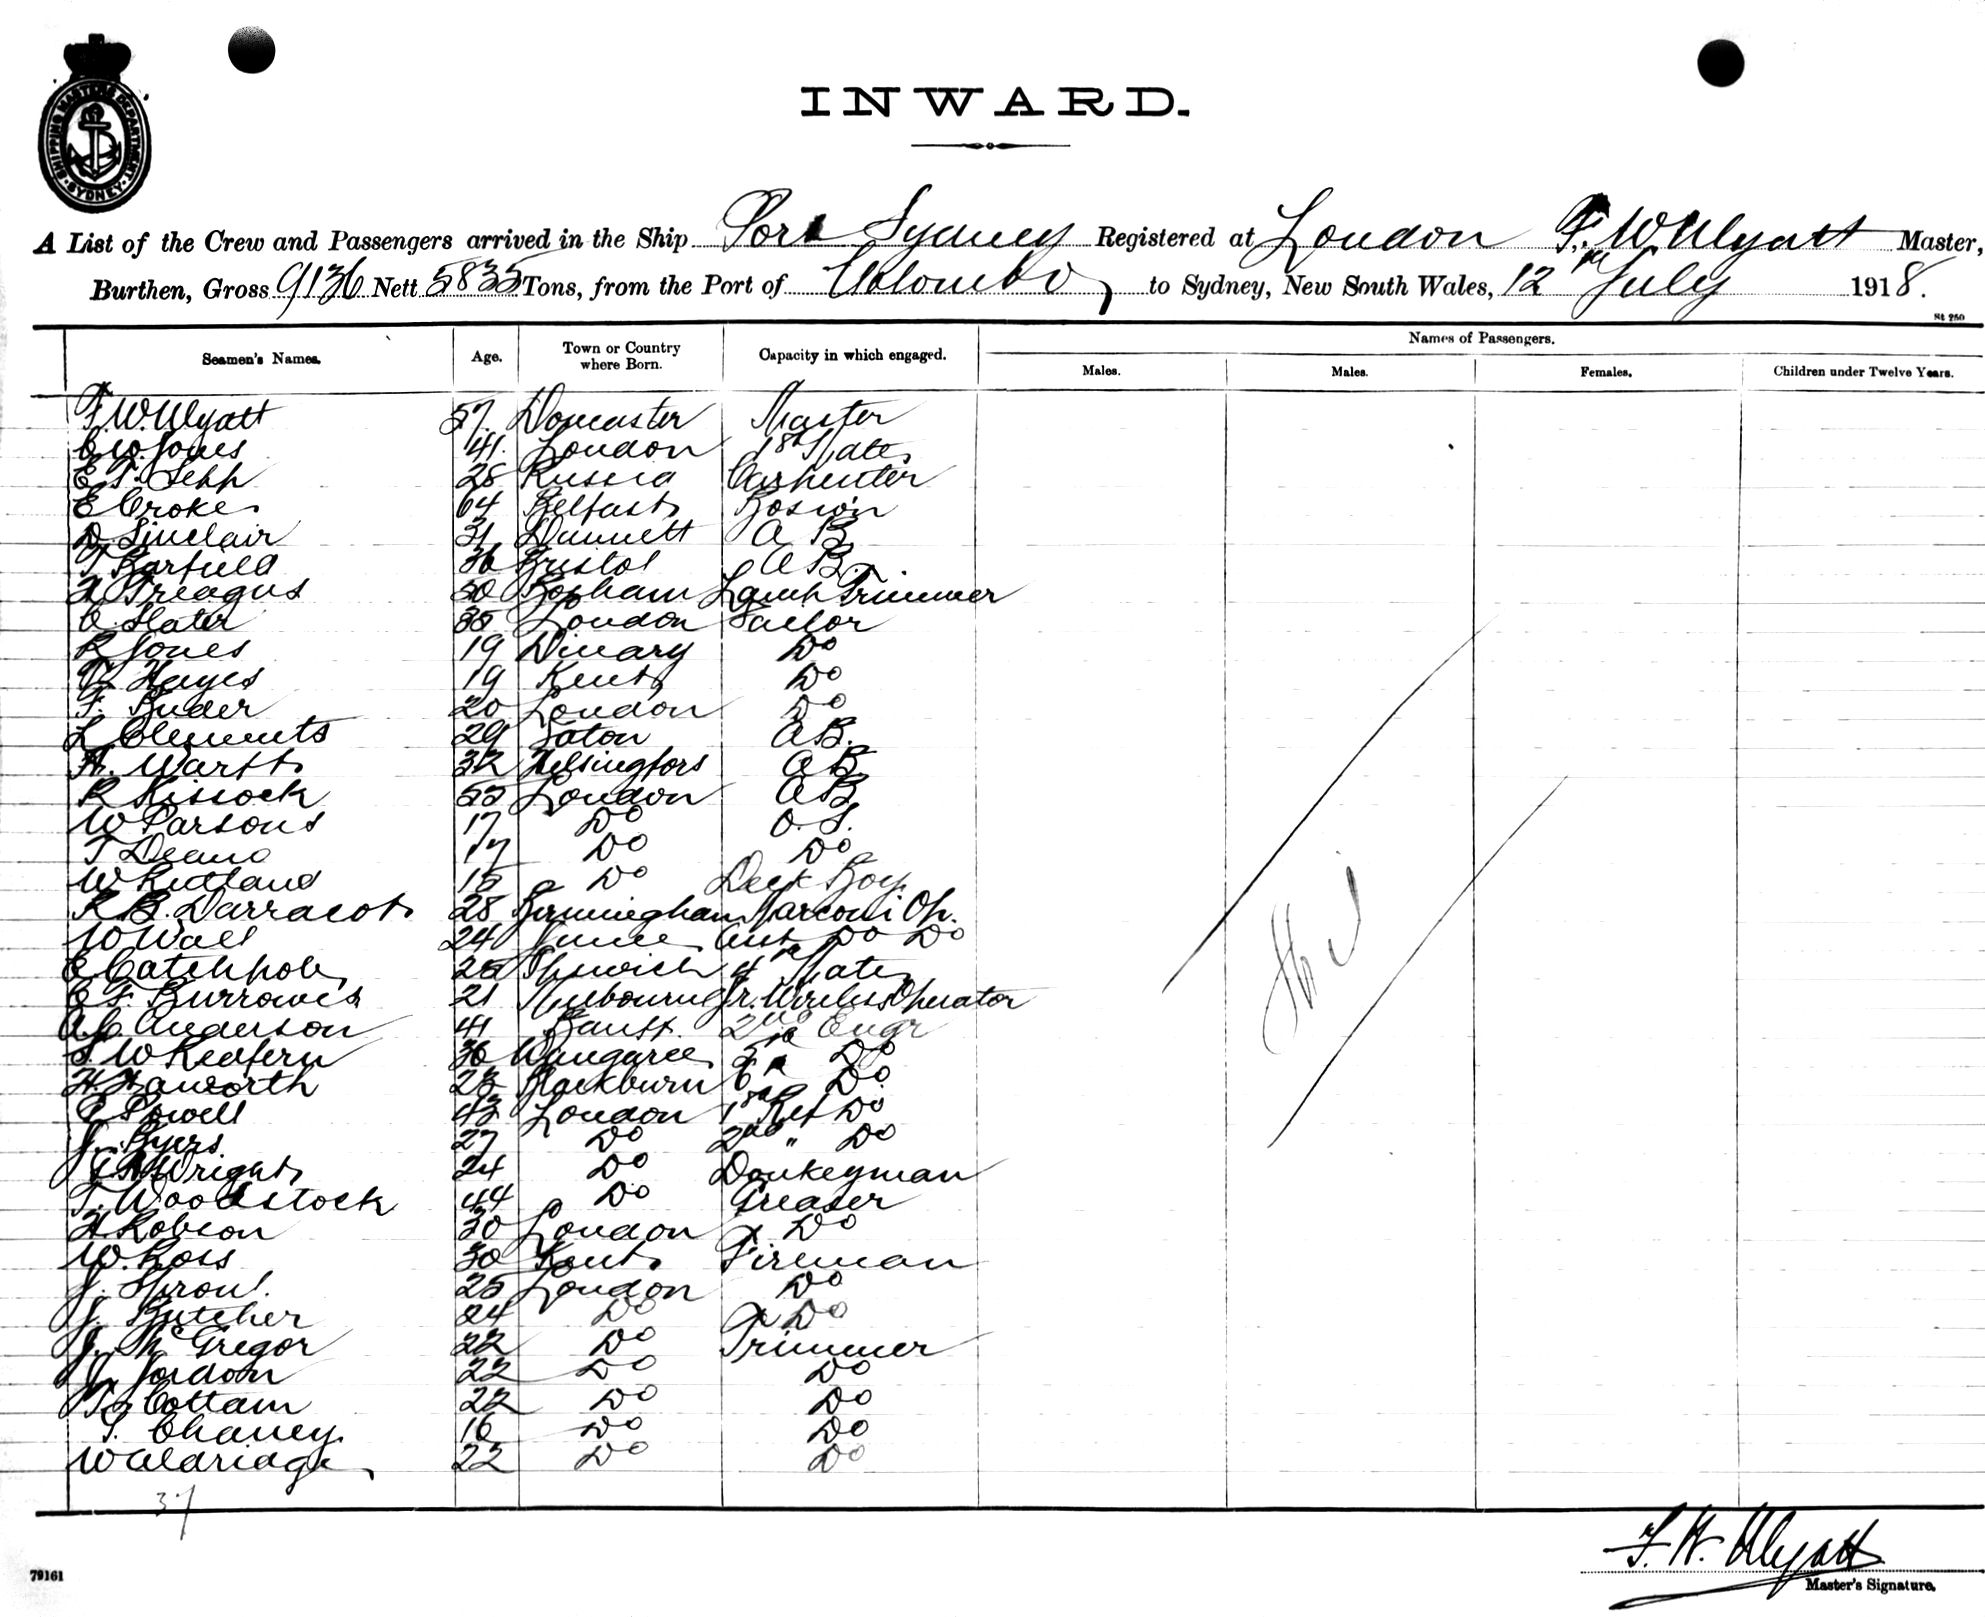 SHIPPING MASTERS DEPARTMENT
SYDNEY
INWARD.
A List of the Crew and Passengers arrived in the Ship Port Sydney Registered at London F. W. Wyatt Master,
Burthen, Gross 9136 Nett 5835 Tons, from the Port of Colombo, to Sydney, New South Wales, 12th July 1918.
St 250
Seamen's Names. Age. Town or Country where Born. Capacity in which engaged. Names of Passengers.
Males. Males. Females. Children under Twelve Years.
F. W. Wyatt 57. Doncaster Master
C. W. Jones 41. London 1st Mate
E. T. Sepp 28 Russia Carpenter
E Croke 64 Belfast Bosw'n
D. Sinclair 31 Dunnett A B
T Barfield 36 Bristol A B.
Treagus 50 Bosham Lamp Trimmer
C. Slater 35 London Sailor
R Jones 19 Do
V. Hayes 19 Kent Do
F. Buder 20 London Do
L Clements 29 A B.
A. Wartt 32 Helsingfors A B
R Kissock 55 London A B
W Parsons 17 Do O. S.
T Deano 17 Do Do
W Rutland 15 Do Deck Boy
R B. Darracot 28 Birmingham Marconi Op.
W Wall 24 Asst Do Do
E Catchpole 25 Ipswich 4th Mate
C F. Burrowes 21 Melbourne Jr. Wireless Operator
A. C Anderson 41 Banff. 2nd Engr
S. W Redfern 36 Wangaree 5th Do
H. Haworth 23 Blackburn 6th Do.
C Powell 43 London 1st Ref Do
J. Byers 27 Do 2nd " Do
Wright 24 Do Donkeyman
T. Woodstock 44 Do Greaser
H Robson 30 London Do
W. Ross 30 Kent Fireman
J. Sproul. 25 London Do
J. Butcher 24 Do Do
J. McGregor 22 Do Trimmer
J. Jordon 22 Do Do
T. Cottam 22 Do Do
S. Chaney. 16 Do Do
W Aldridge 22 Do Do
Nil
37
F. W. Wyatt
Master's Signature.
79161